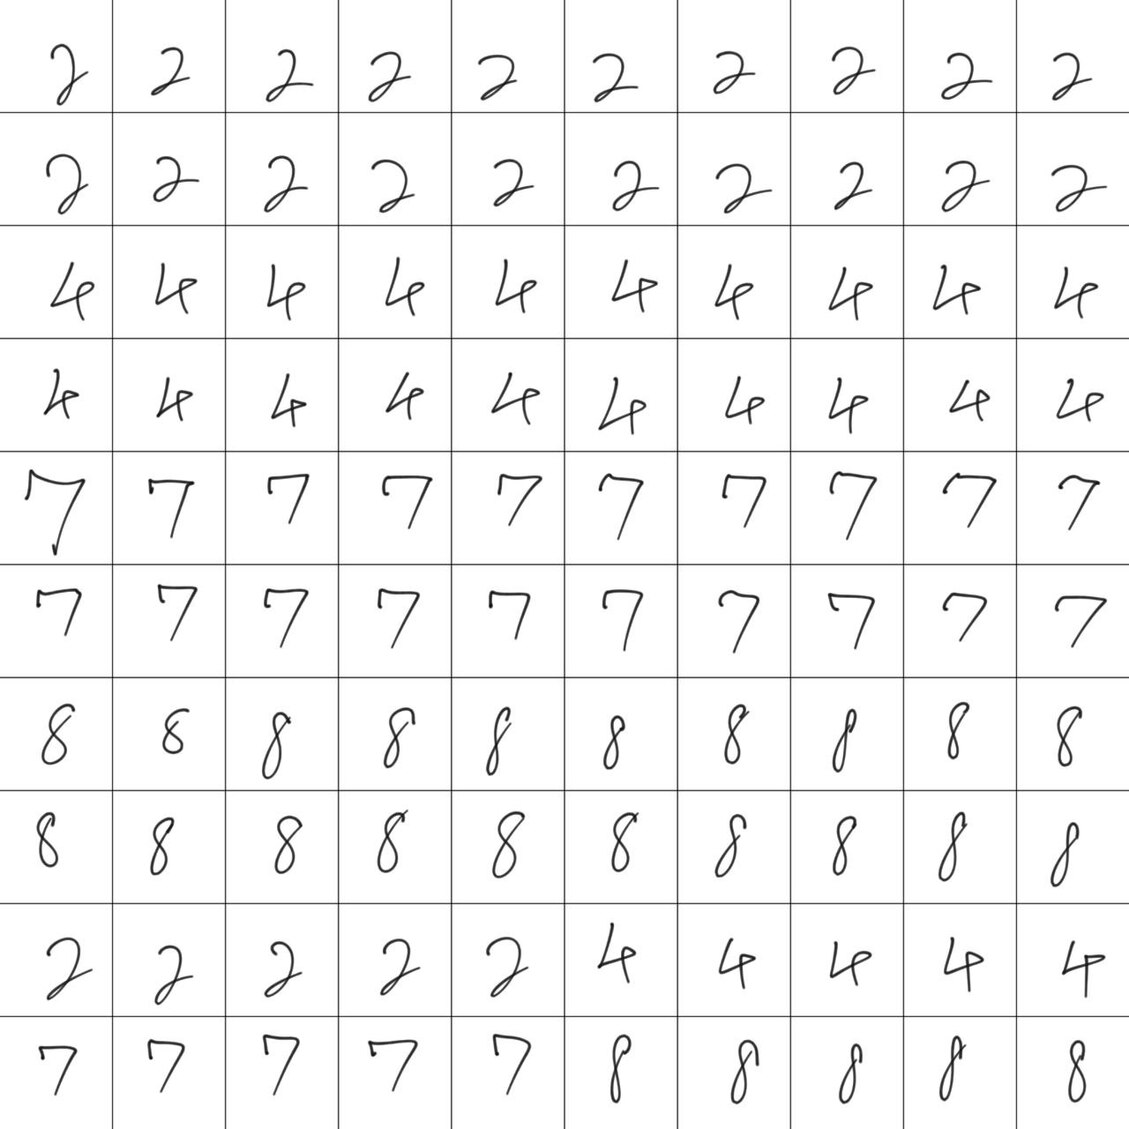 2 2 2 2 2 2 2 2 2 2
2 2 2 2 2 2 2 2 2 2
4 4 4 4 4 4 4 4 4 4
4 4 4 4 4 4 4 4 4 4
7 7 7 7 7 7 7 7 7 7
7 7 7 7 7 7 7 7 7 7
8 8 8 8 8 8 8 8 8 8
8 8 8 8 8 8 8 8 8 8
2 2 2 2 2 4 4 4 4 4
7 7 7 7 7 8 8 8 8 8